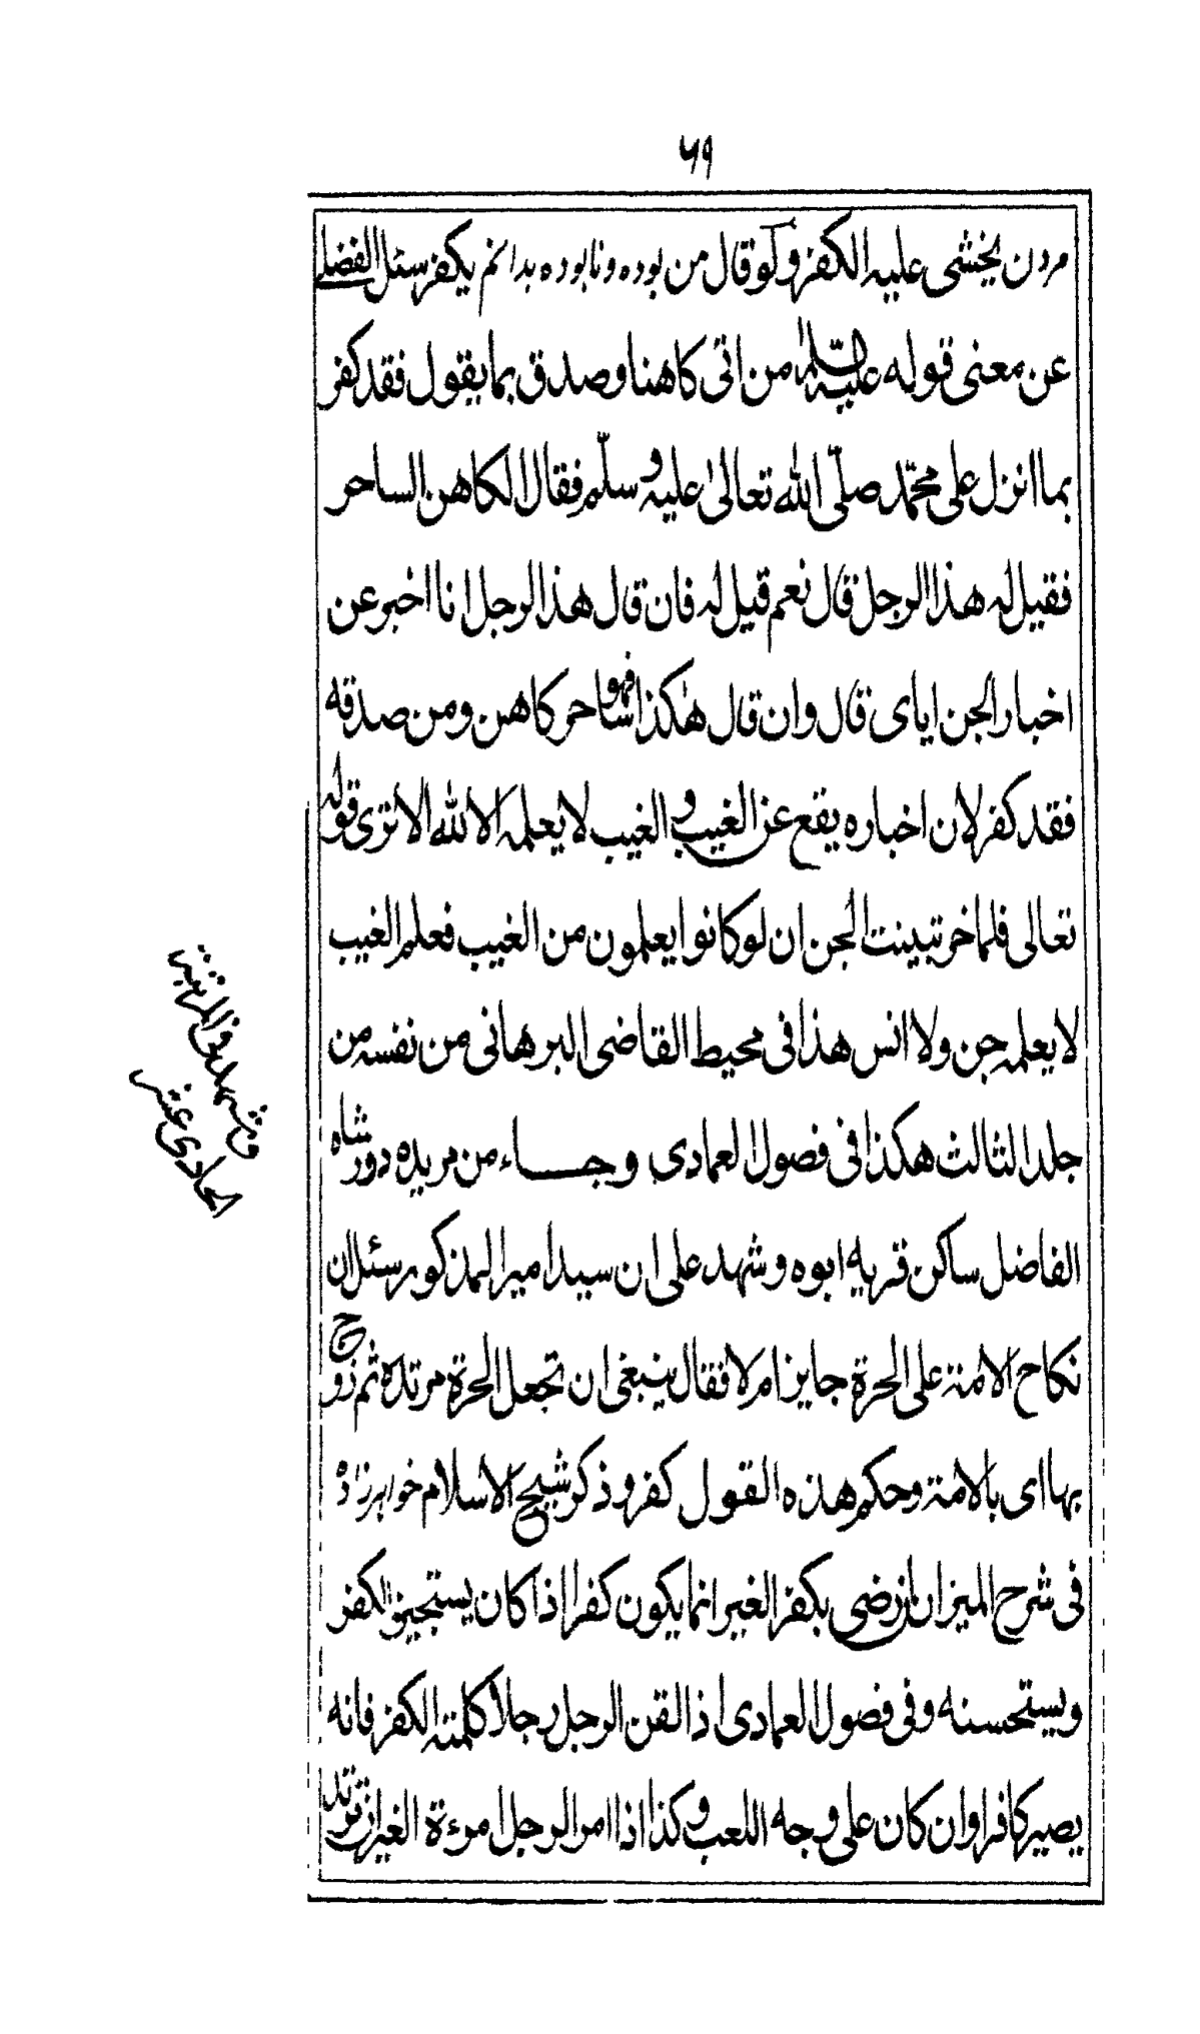 ۵۹
مردن یخشی علیہ الکفر ولو قال من بوده و نابوده بدانم یکفر سئل الفضلے
عن معنی قوله علیہ السّلام من اتی کاهنا و صدق بما یقول فقد کفر
بما انزل علی محمّد صلّی الله تعالیٰ علیه و سلّم فقال الکاهن الساحر
فقیل له هذا الرجل قال نعم قیل له فان قال هذا الرجل انا اخبر عن
اخبار الجن ایای قال وان قال هٰکذا فهو ساحر کاهن ومن صدقه
فقد کفر لان اخباره یقع عن الغیب و الغیب لا یعلمہ الا الله الا تری قوله
تعالی فلما خر تبینت الجن ان لو کانوا یعلمون من الغیب فعلم الغیب
لا یعلمہ جن ولا انس هذا فی محیط القاضی البرهانی من نفسه من
جلد الثالث هکذا فی فصول العمادی وجاء من مریده دور شاه
الفاضل ساکن قریه ابوه و شهد علی ان سید امیر المذکور سئل ان
نکاح الامة علی الحرة جایز ام لا فقال ینبغی ان تجعل الحرة مرتدة ثم زوج
بها ای بالامة وحکم هذه القول کفر و ذکر شیخ الاسلام خواهرزاده
فی شرح المیزان ان رضی بکفر الغیر انما یکون کفرا اذا کان یستجیز الکفر
ویستحسنه وفی فصول العمادی اذا لقن الرجل رجلا کلمتہ الکفر فانه
یصیر کافرا وان کان علی وجه اللعب و کذا اذا امر الرجل امرءة الغیر ان ترتد
و شهد فی المرتبة
الحادی عشر